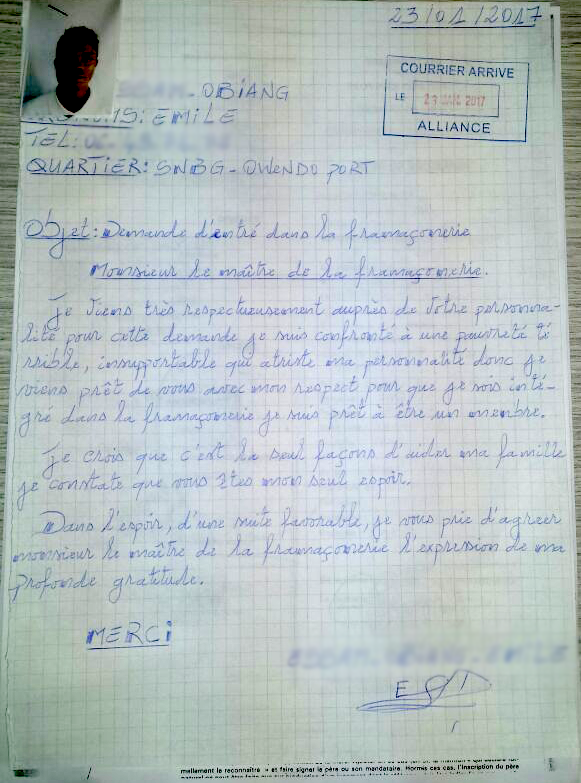 23/01/2017
COURRIER ARRIVE
LE 2017
ALLIANCE
OBIANG
EMILE
TEL:
QUARTIER: SNBG - OWENDO PORT
Objet: Demande d'entré dans la framaçonerie
Monsieur le maître de la framaçonerie.
Je viens très respectueusement auprès de votre personna-
lité pour cette demande je suis confronté à une pauvreté té
rrible, insupportable qui atriste ma personnalité donc je
viens prêt de vous avec mon respect pour que je sois inté-
gré dans la framaçonerie je suis prêt à être un membre.
Je crois que c'est la seul façons d'aider ma famille
je constate que vous êtes mon seul espoir.
Dans l'espoir, d'une suite favorable, je vous prie d'agreer
monsieur le maître de la framaçonerie l'expression de ma
profonde gratitude.
MERCi
mellement le reconnaître » et faire signer la père ou son mandataire. Hormis ces cas, l'inscription du père